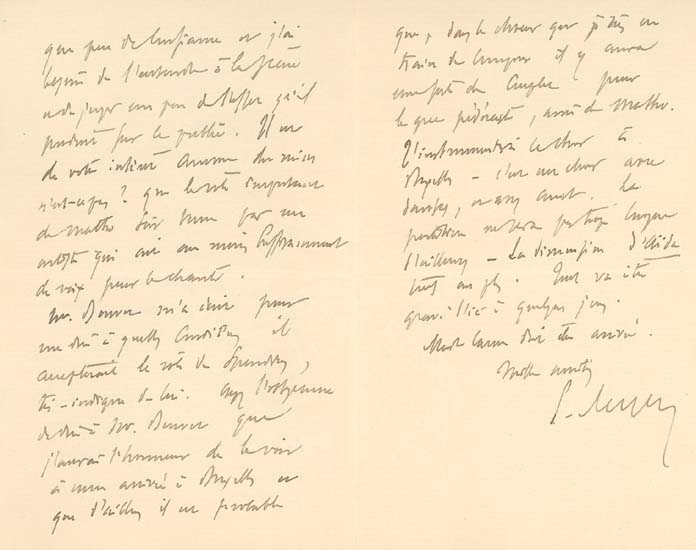 que peu de confiance et j'ai
besoin de l'entendre à la scène
et de juger un peu de l'effet qu'il
produit sur le public. Il est
de votre intérêt comme du mien
n'est-ce pas? que le rôle important
de Matho soit tenu par un
artiste qui ait au moins suffisamment
de voix pour le chanter.
Mr. Bouvet m'a écrit pour
me dire à quelles conditions il
accepterait le rôle de Spendius,
très-indigne de lui. ayez l'obligeance
de dire à Mr. Bouvet que
j'aurai l'honneur de le voir
à mon arrivée à Bruxelles et
que d'ailleurs il est probable
que, dans le chœur que je suis en
train de composer il y aura
une sorte de couplet pour
le grec, ami de Matho.
J'instrumenterai ce chœur à
Bruxelles - c'est un chœur avec
danses, et assez court. La
partition ne sera pas trop longue
d'ailleurs - La dimension d'Aïda
tout au plus. Tout va être
gravé d'ici à quelques jours.
Made Caron doit être arrivée.
Mille amitiés
E. Reyer